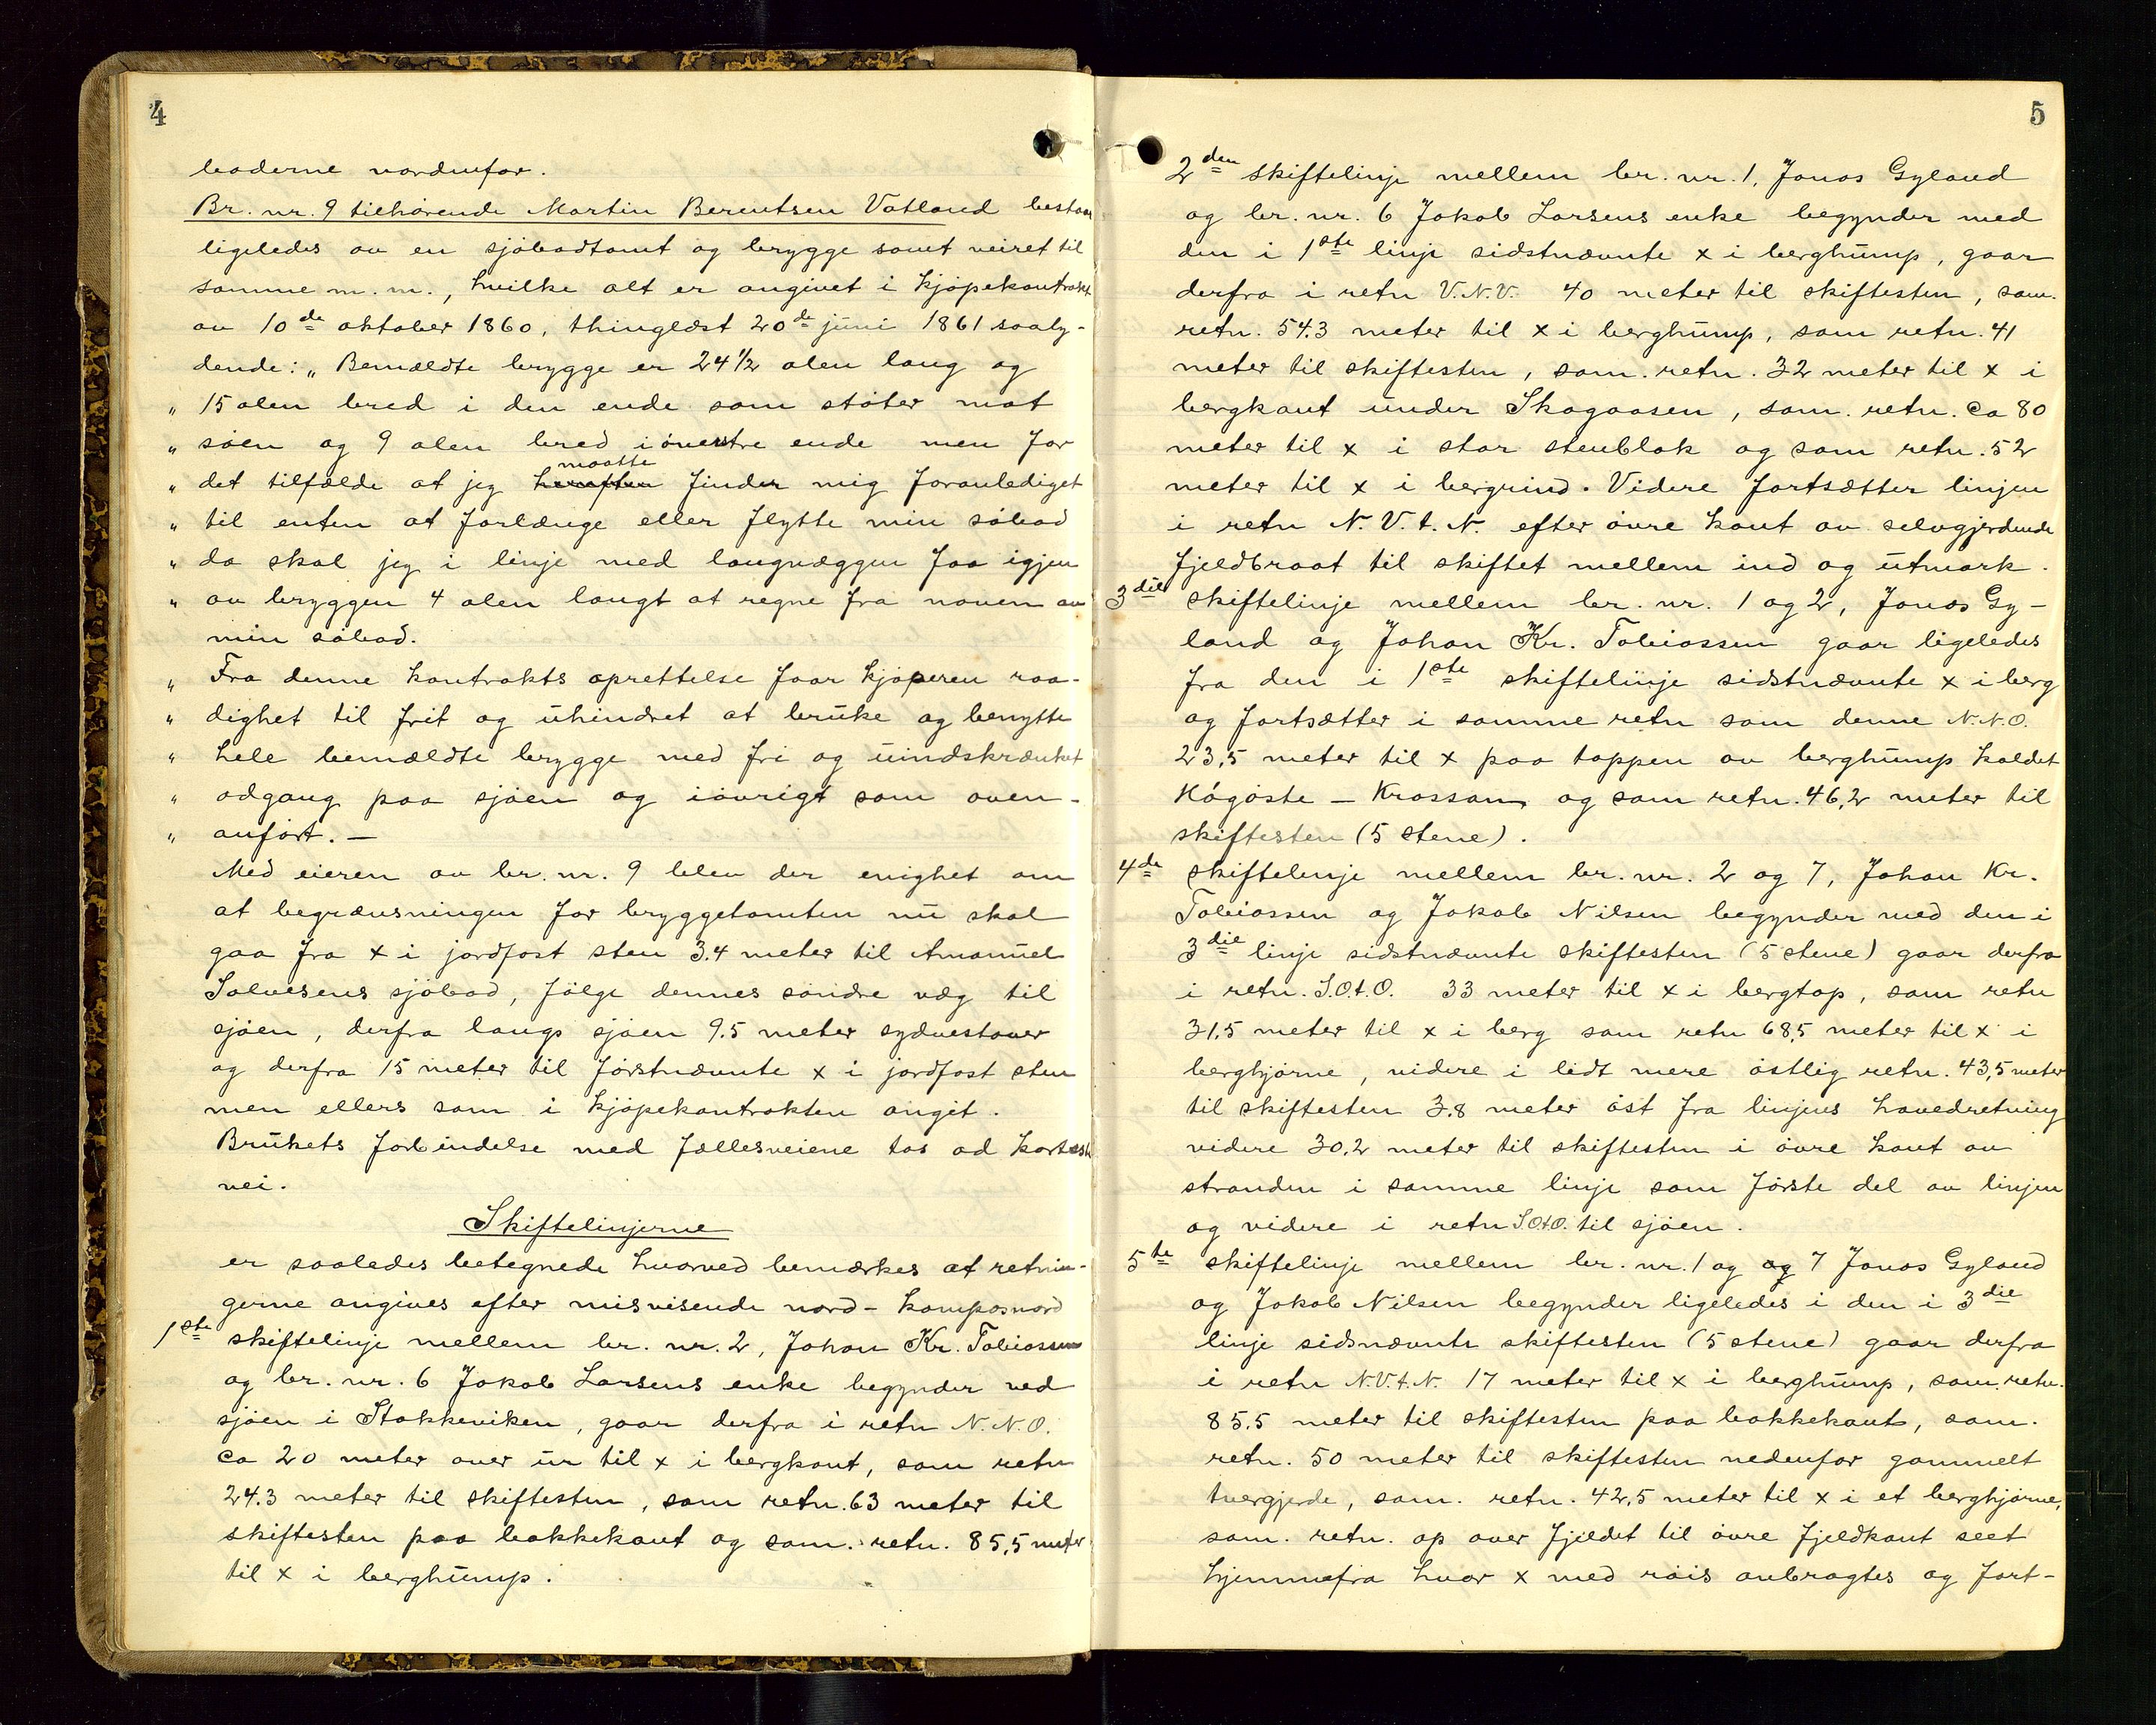 4
boderne nordenfor.
Br. nr. 9 tilhörende Martin Berentsen Vatland bestaar
ligeledes av en sjöbodtomt og brygge samt veiret til
samme m. m., hvilke alt er angivet i kjöpekontrakt
av 10de oktober 1860, thinglæst 20de juni 1861 saaly-
dende: „Bemældte brygge er 24 1/2 alen lang og
„ 15 alen bred i den ende som stöter mot
„ söen og 9 alen bred i övestre ende men for
„ det tilfælde at jeg maatte finder mig foranlediget
„ til enten at forlænge eller flytte min söbod
„ da skal jeg i linje med langvæggen faa igjen
„ av bryggen 4 alen langt at regne fra noven av
min söbod.
„ Fra denne kontrakts oprettelse faar kjöperen raa-
„ dighet til frit og uhindret at bruke og benytte
„ hele bemældte brygge med fri og uindskrænket
„ adgang paa sjöen og iövrigt som oven-
„ anfört. —
Med eieren av br. nr. 9 blev der enighet om
at begrænsningen for bryggetomten nu skal
gaa fra x i jordfast sten 3.4 meter til Amanuel
Salvesens sjöbod, fölge dennes söndre væg til
sjöen, derfra langs sjöen 9.5 meter sydvestover
og derfra 15 meter til förstnævnte x i jordfast sten
men ellers som i kjöpekontrakten angit.
Brukets forbindelse med fællesveiene tas ad korteste
vei.
Skiftelinjerne
er saaledes betegnede hvorved bemærkes at retnin-
gerne angives efter misvisende nord - kompasnord
1ste skiftelinje mellem br. nr. 2, Johan Kr. Tobiassen
og br. nr. 6 Jakob Larsens enke begynder ved
sjöen i Stokkeviken, gaar derfra i retn N. N. O.
ca 20 meter over ur til x i bergkant, sam retn
24.3 meter til skiftesten, sam retn. 63 meter til
skiftesten paa bakkekant og sam. retn. 85,5 meter
til x i berghump.
5
2den skiftelinje mellem br. nr. 1, Jonas Gyland
og br. nr. 6 Jakob Larsens enke begynder med
den i 1ste linje sidstnævnte x i berghump, gaar
derfra i retn V. N. V. 40 meter til skiftesten, sam.
retn. 54.3 meter til x i berghump, sam retn. 41
meter til skiftesten, sam. retn. 32 meter til x i
bergkant under Skogaasen, sam. retn. ca 80
meter til x i stor stenblok og sam retn. 52
meter til x i bergrind. Videre fortsætter linjen
i retn N. V. t. N. efter övre kant av selvgjerdende
fjeldbraat til skiftet mellem ind og utmark.
3die skiftelinje mellem br. nr. 1 og 2, Jonas Gy-
land og Johan Kr. Tobiassen gaar ligeledes
fra den i 1ste skiftelinje sidstnævnte x i berg
og fortsætter i samme retn som denne N. N. O.
23,5 meter til x paa toppen av berghump kaldet
Högöste - Krossan og sam retn. 46,2 meter til
skiftesten (5 stene).
4de skiftelinje mellem br. nr. 2 og 7, Johan Kr.
Tobiassen og Jakob Nilsen begynder med den i
3die linje sidstnævnte skiftesten (5 stene) gaar derfra
i retn. S.O.t.O. 33 meter til x i bergtop, sam retn
31,5 meter til x i berg sam retn 68,5 meter til x i
berghjörne, videre i lidt mere östlig retn. 43,5 meter
til skiftesten 3.8 meter öst fra linjens hovedretning
videre 30.2 meter til skiftesten i övre kant av
stranden i samme linje som förste del av linjen
og videre i retn S.O.t.O. til sjöen.
5te skiftelinje mellem br. nr. 1 og og 7 Jonas Gyland
og Jakob Nilsen begynder ligeledes i den i 3die
linje sidsnævnte skiftesten (5 stene) gaar derfra
i retn N.V.t.N. 17 meter til x i berghump, sam. retn.
85.5 meter til skiftesten paa bakkekant, sam.
retn. 50 meter til skiftesten nedenfor gammelt
tvergjerde, sam. retn. 42,5 meter til x i et berghjörne,
sam. retn. op over fjeldet til övre fjeldkant seet
hjemmefra hvor x med röis anbragtes og fort-